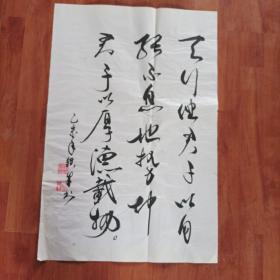 天行健君子以自
强不息地势坤
君子以厚德載物。
乙未年